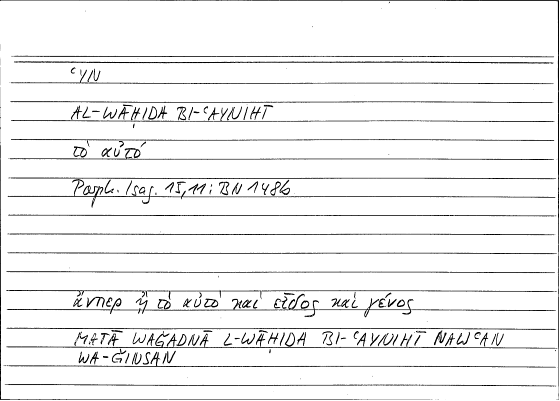 ʿYN
AL-WĀḤIDA BI-ʿAYNIHĪ
τὸ αὐτό
Porph. Isag. 15,11: BN 148b
ἄνπερ ᾖ τὸ αὐτὸ καὶ εἶδος καὶ γένος
MATĀ WAǦADNĀ L-WĀḤIDA BI-ʿAYNIHĪ NAWʿAN
WA-ǦINSAN